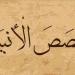 صَصَ الْأَنبِيَ